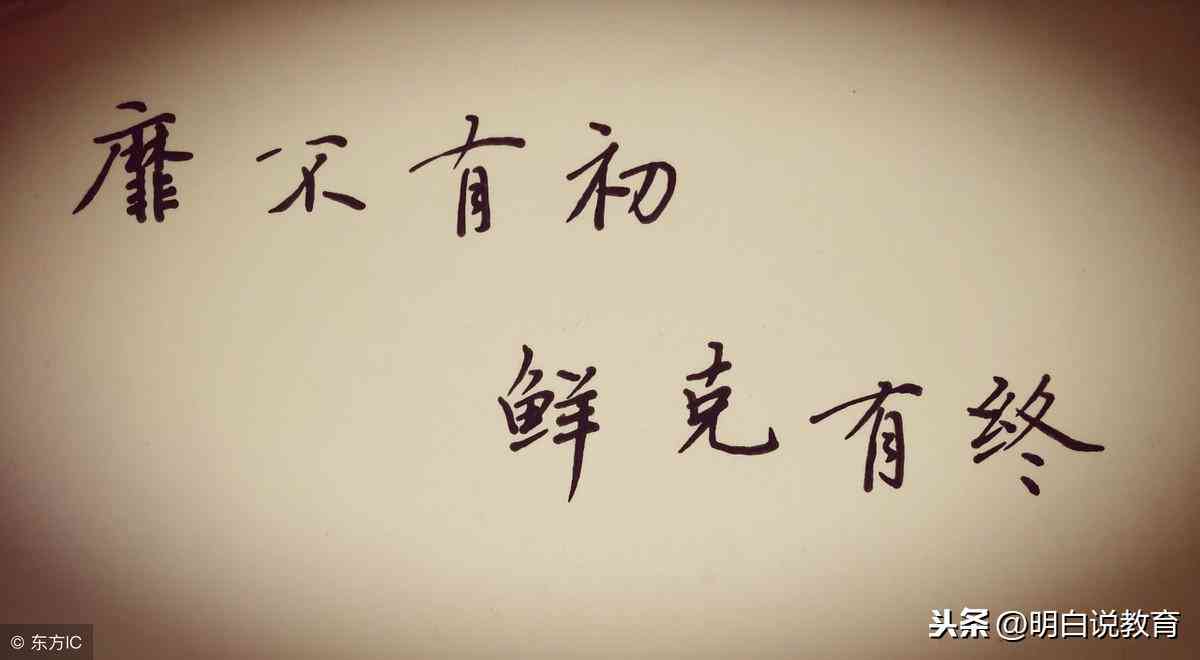 靡不有初
鲜克有终
© 东方IC
头条 @明白说教育